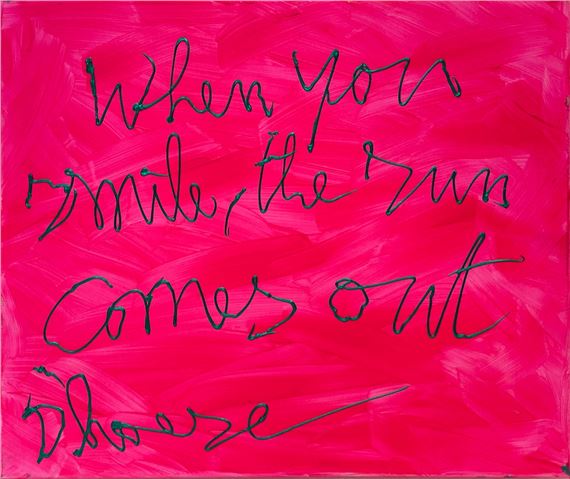 When you
smile, the sun
comes out